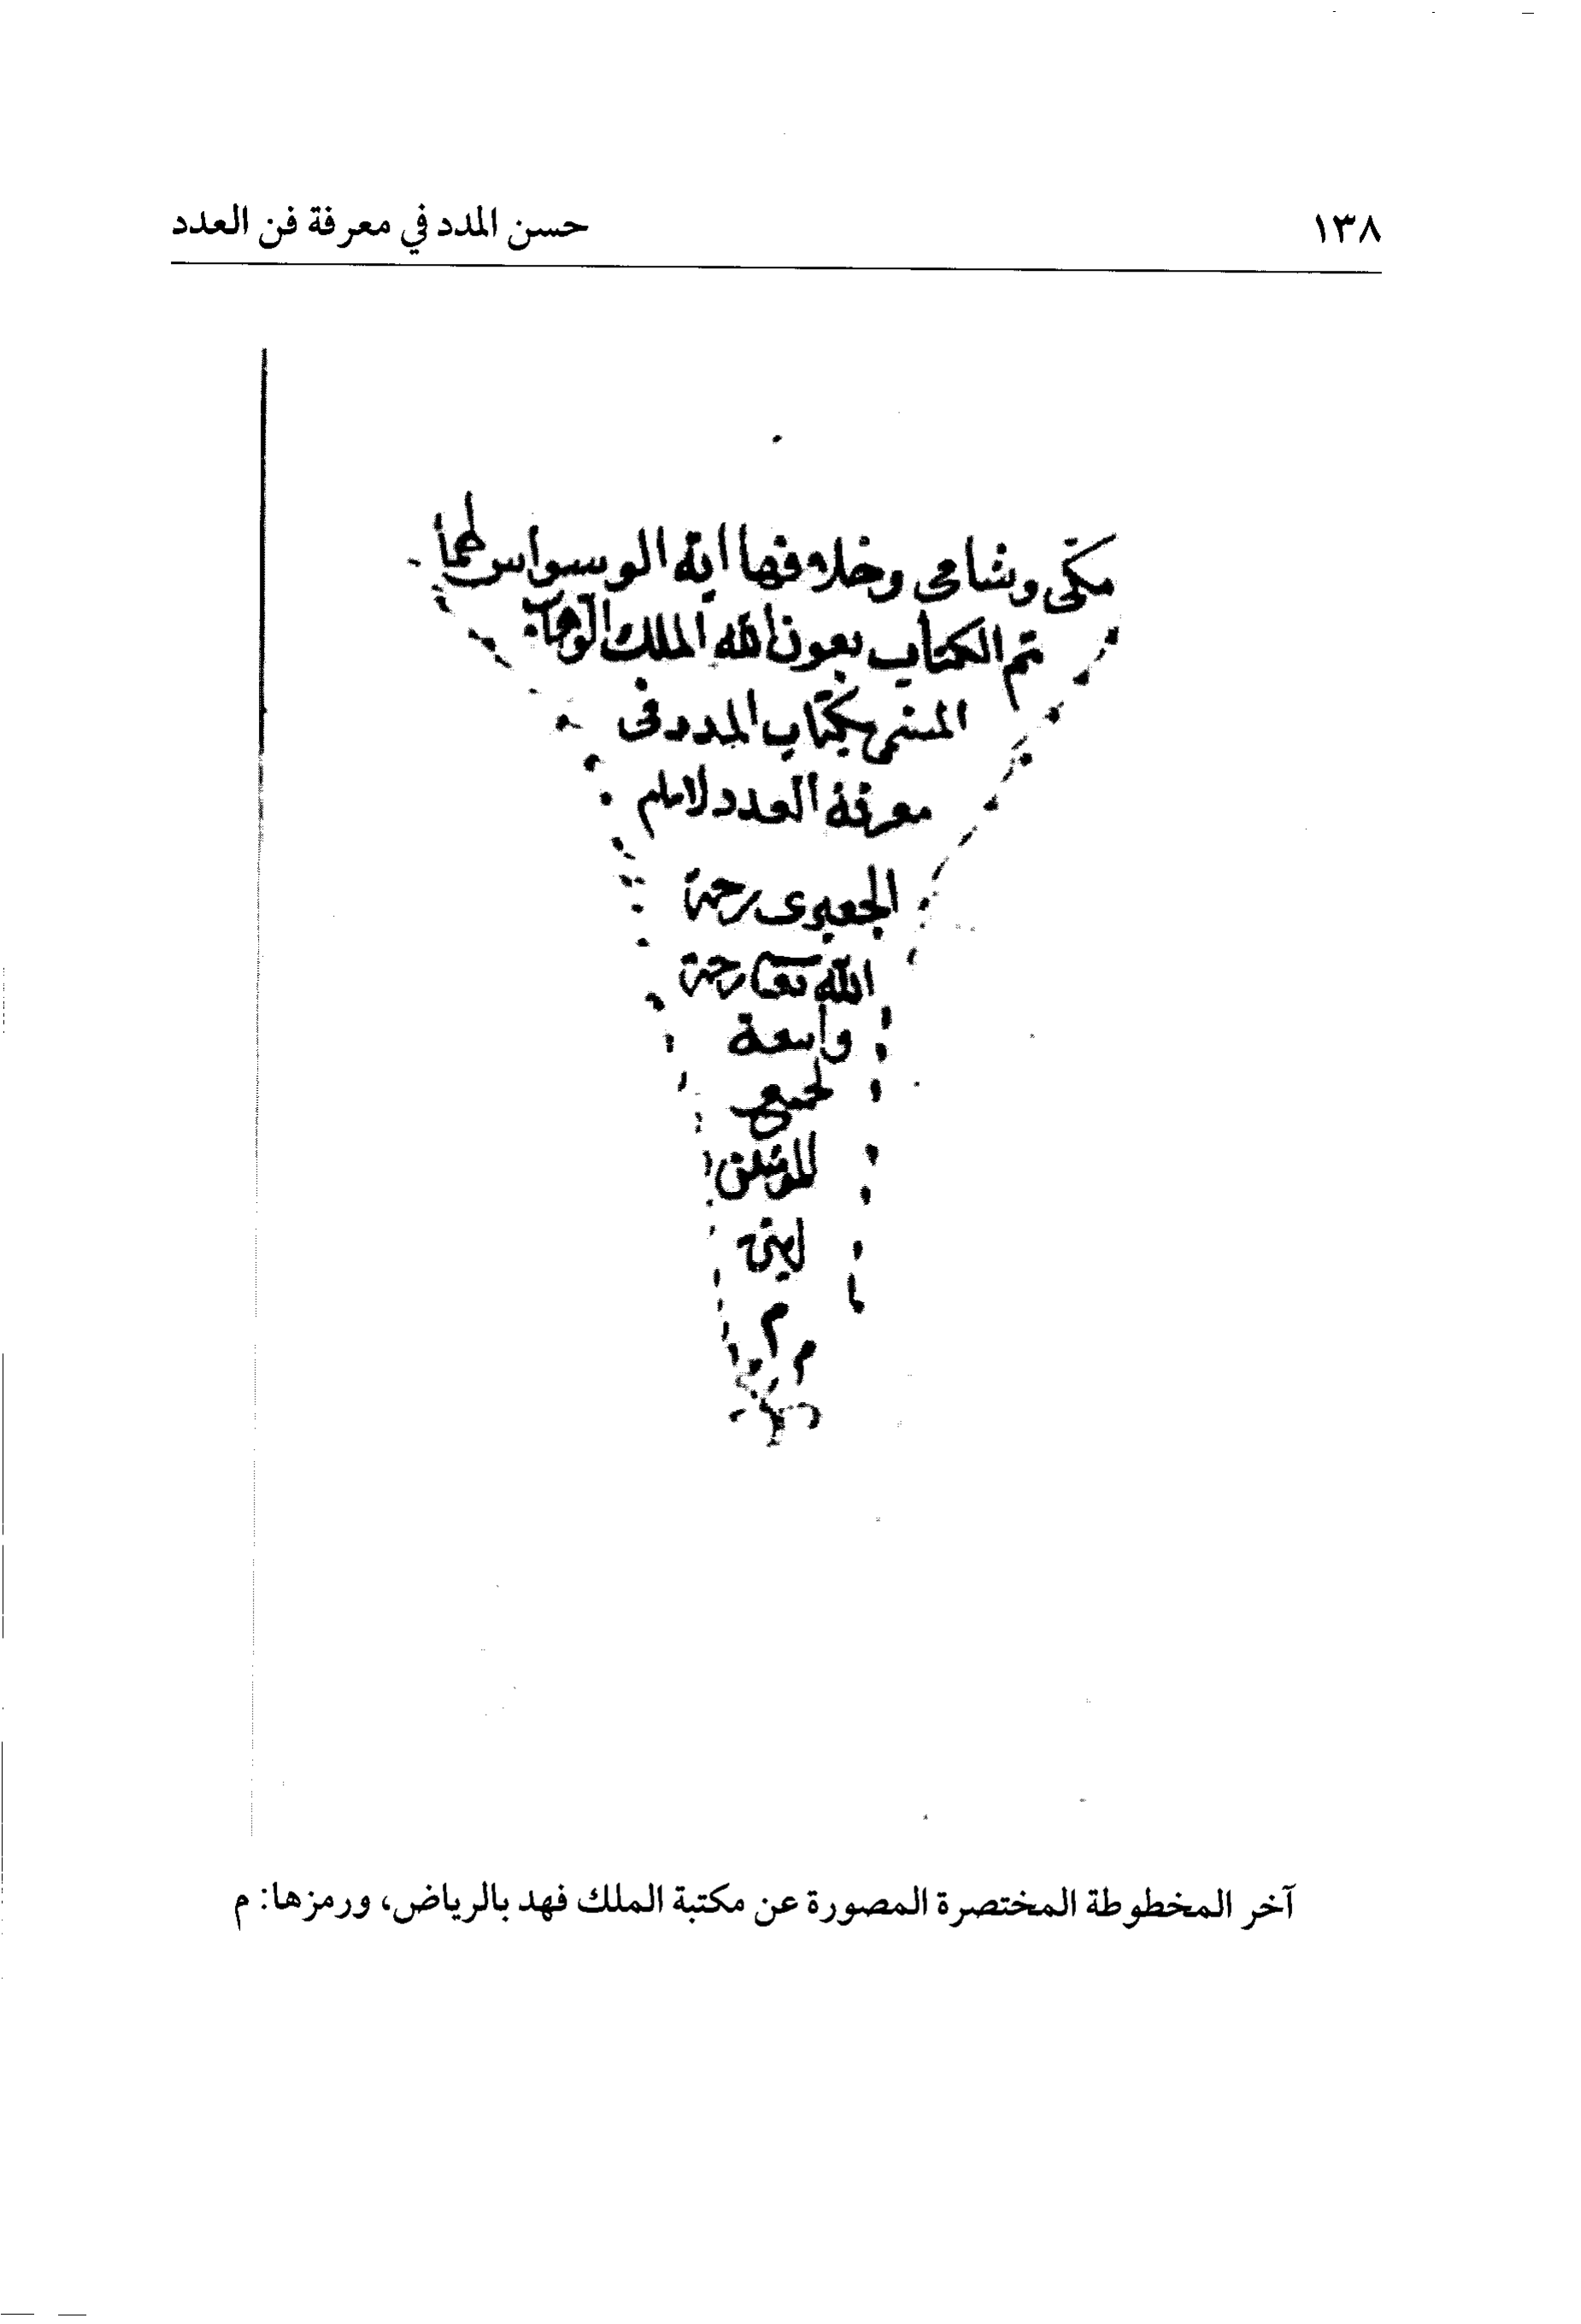 ١٣٨
حسن المدد في معرفة فن العدد
مكى وشامى وخلافها اية الوسواس لهما
تم الكتاب بعون الله الملك الوهاب
المسمى بكتاب المدد فى
معرفة العدد للامام
الجعبرى رحمة
الله تعا رحمة
واسعة
لجميع
امين
م
م
آخر المخطوطة المختصرة المصورة عن مكتبة الملك فهد بالرياض، ورمزها: م